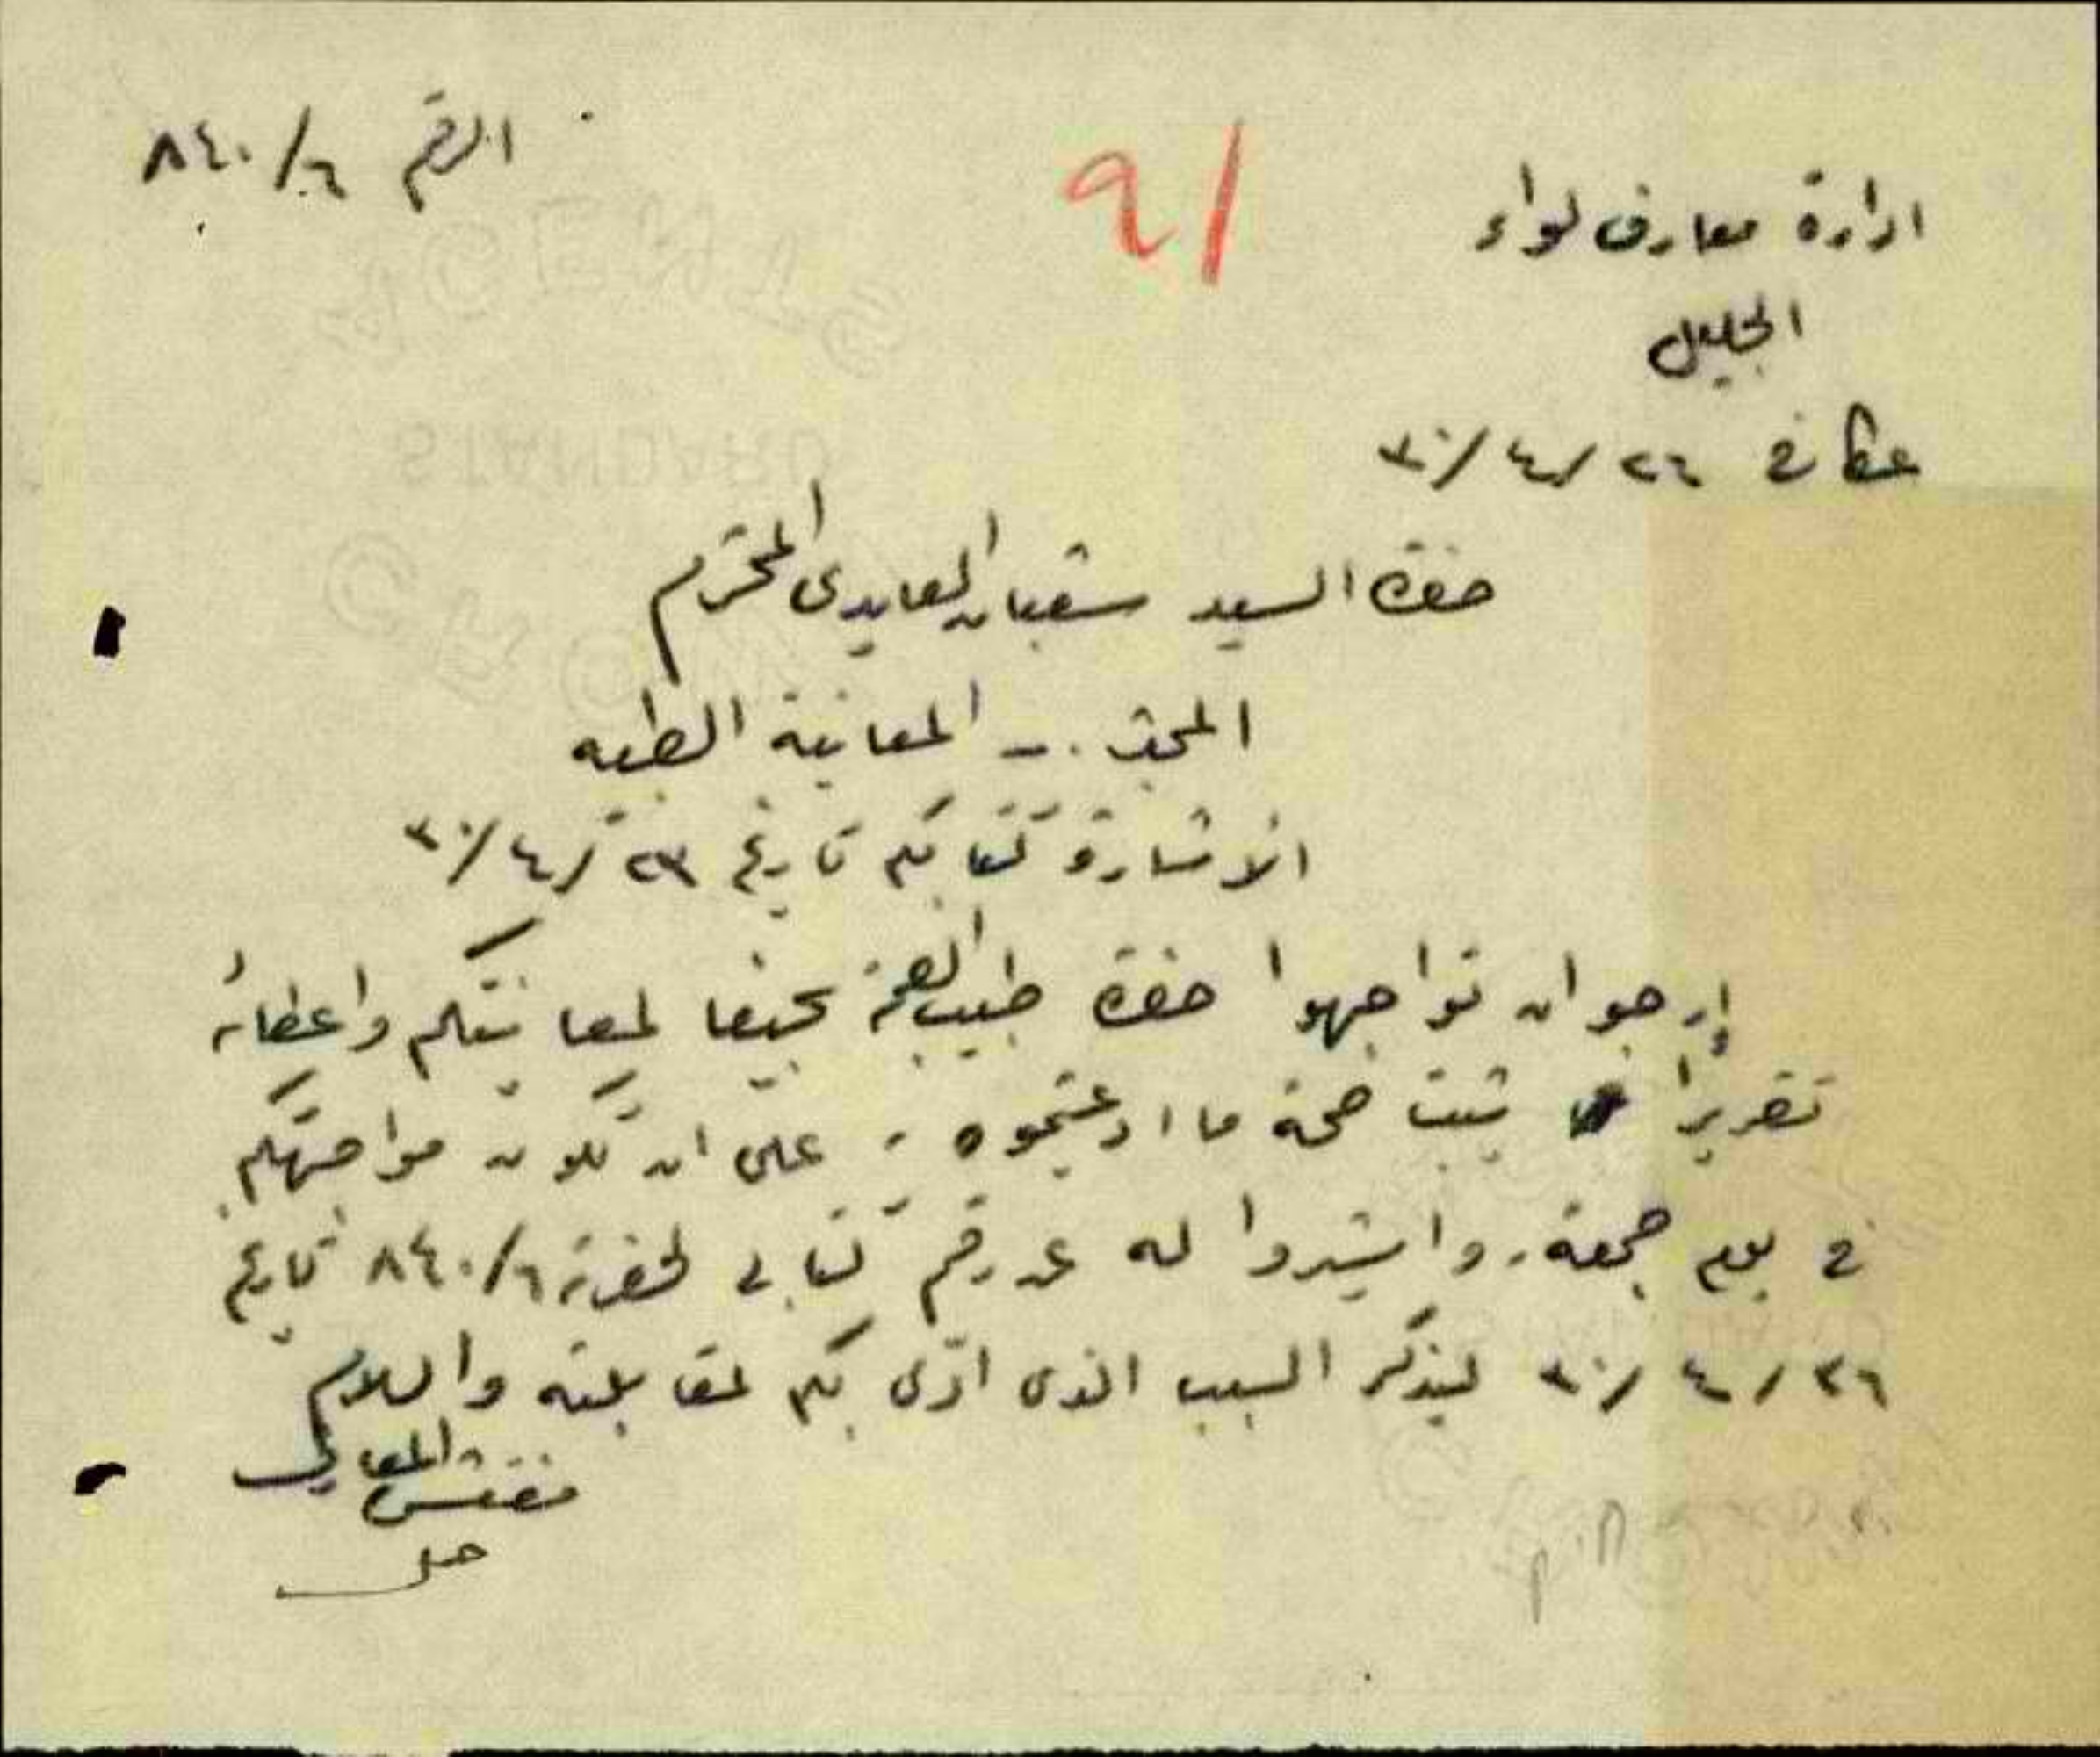 الرقم ٨٤٠/٦
٩١
ادارة معارف لواء
الجليل
عكا في ٢٦/٤/٣٠
حضرة السيد شعبان العايدي المحترم
المبحث .- المعاينة الطبيه
الاشارة كتابكم تاريخ ٢٣/٤/٣٠
ارجو ان تواجهوا حضرة طبيب الصحة بحيفا لمعاينتكم واعطائه
تقريرا يثبت صحة ما ادعيتموه، على ان تكون مواجهتكم
في يوم جمعة، واشيروا له عن رقم كتابي لحضرته ٨٤٠/٦ تاريخ
٢٦/٤/٣٠ ليذكر السبب الذي ادى بكم لمقابلته والسلام
مفتش المعارف
STANDARD
CROWN